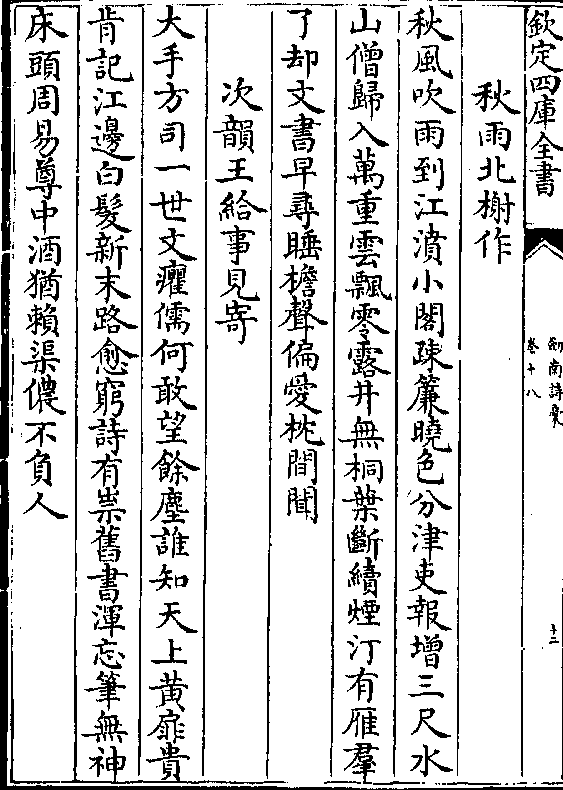 欽定四庫全書
劍南詩稾
卷十八
十二
秋雨北榭作
秋風吹雨到江濆小閣疎簾曉色分津吏報增三尺水
山僧歸入萬重雲飄零露井無桐葉斷續煙汀有雁羣
了却文書早尋睡檐聲偏愛枕間聞
次韻王給事見寄
大手方司一世文癯儒何敢望餘塵誰知天上黄扉貴
肯記江邊白髮新末路愈窮詩有祟舊書渾忘筆無神
床頭周易尊中酒猶賴渠儂不負人